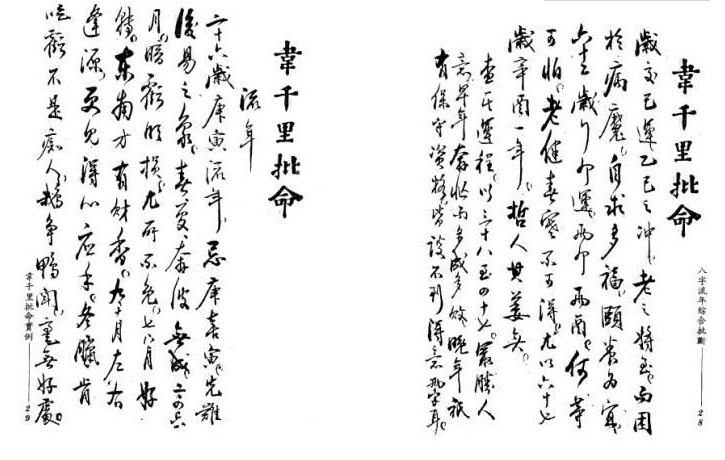 八字流年綜合批斷——28
韋千里批命
歲交己運乙巳之冲，老之將至，而困
於病魔，自求多福，頤養為宜，
六十三歲行卯運，兩卯兩酉，何等
可怕，老健春寒不可得，尤以六十七
歲辛酉一年，哲人其萎矣。
查其運程，以三十八至四十七最勝人
意，早年奔忙而多成多敗，晚年祇
有保守資格，皆談不到得意兩字耳。
韋千里批命
流年
二十六歲庚寅流年，忌庚喜寅，先難
後易之象，春夏奔波無成，二四六
月，暗虧明損，尤所不免，七八月好
轉，東南方有財香，九十月左右
逢源，更見得心應手，冬臘肯
吃虧不是痴人，鵝爭鴨鬧，毫無好處。
韋千里批命實例——29